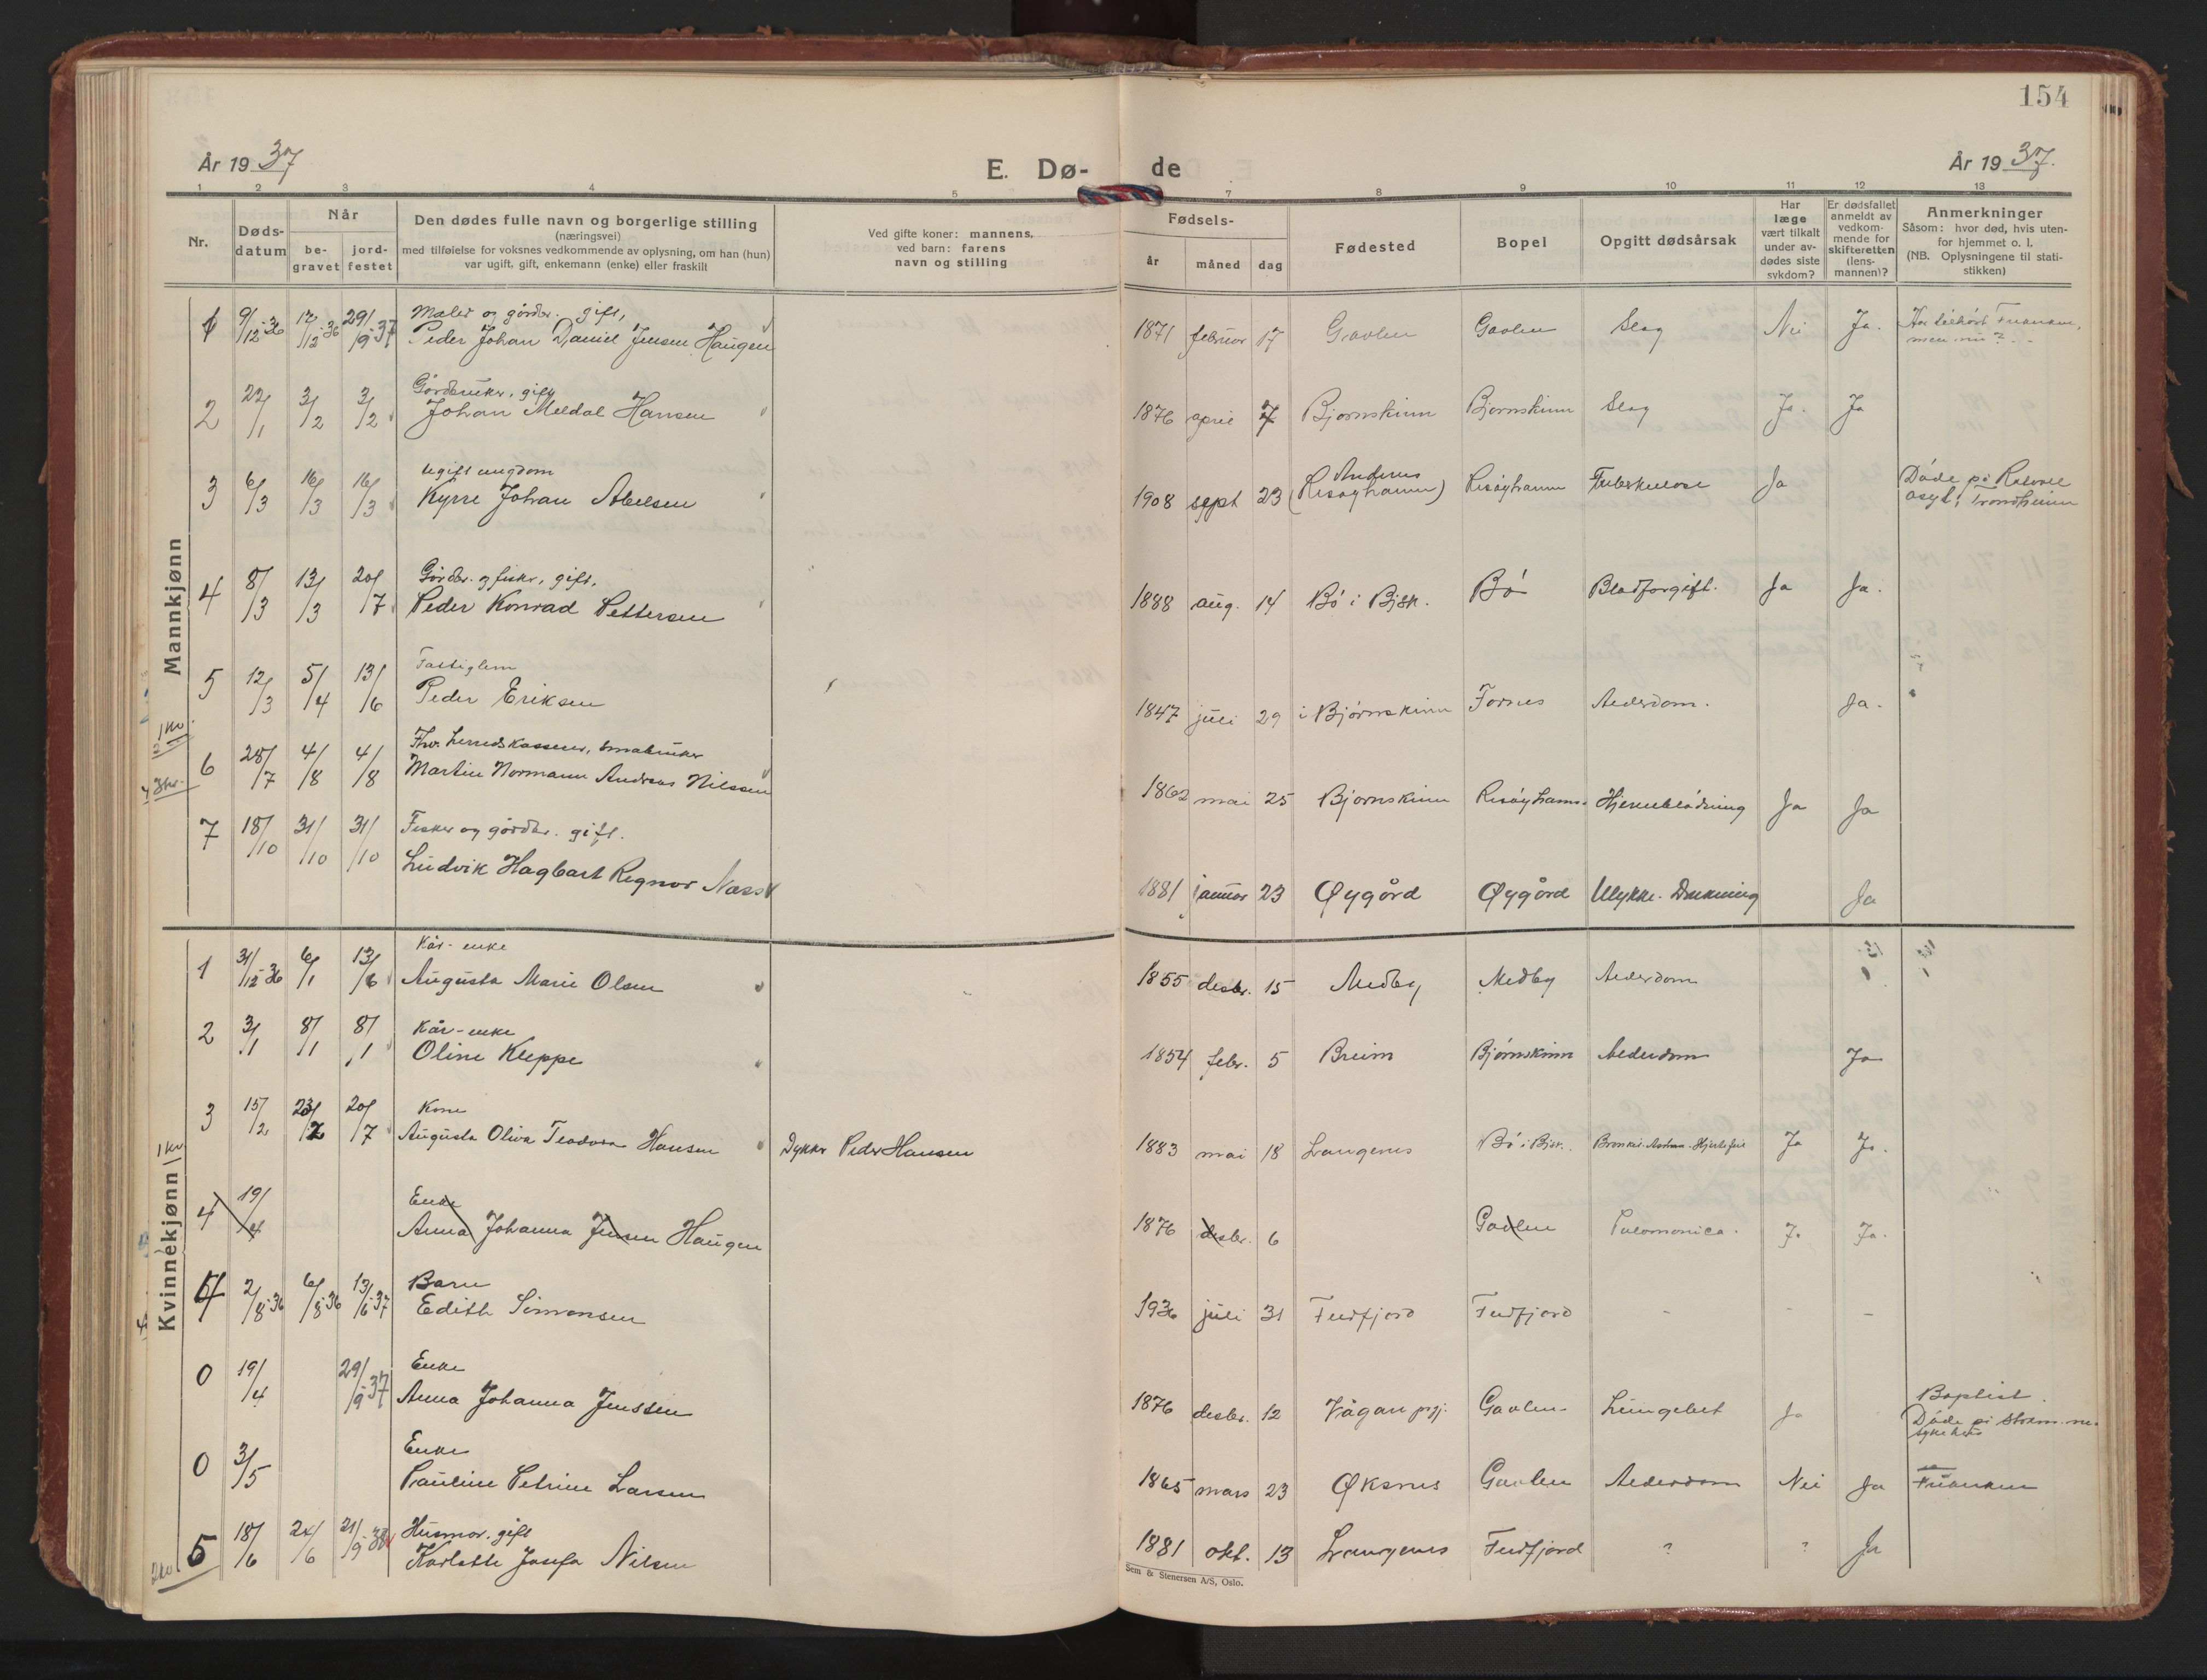 154
År 1937
E. Dø-
de
År 1937.
1 2 3 4 5 7 8 9 10 11 12 13
Nr.
Døds-
datum
Når
be-
gravet
jord-
festet
Den dødes fulle navn og borgerlige stilling
(næringsvei)
med tilføielse for voksnes vedkommende av oplysning, om han (hun)
var ugift, gift, enkemann (enke) eller fraskilt
Ved gifte koner: mannens,
ved barn: farens
navn og stilling
Fødsels-
år
måned
dag
Fødested
Bopel
Opgitt dødsårsak
Har
læge
vært tilkalt
under av-
dødes siste
sykdom?
Er dødsfallet
anmeldt av
vedkom-
mende for
skifteretten
(lens-
mannen)?
Anmerkninger
Såsom: hvor død, hvis uten-
for hjemmet o. l.
(NB. Oplysningene til stati-
stikken)
Mannkjønn
1 9/12-36 12/12-36 29/9-37 Maler og gårdbr. gift,
Peder Johan Daniel Jensen Haugen
1871 februar 17 Gavlen Gavlen Slag Nei Ja. Har tilhørt Frikirken,
men nu?
2 22/1 3/2 3/2 Gårdbruker, gift
Johan Meldal Hansen
1876 april 7 Bjørnskinn Bjørnskinn Slag Ja. Ja
3 6/3 16/3 16/3 Ugift ungdom
Kyrre Johan Abelsen
1908 sept 23 Andenes
(Risøyhamn) Risøyhamn Tuberkulose Ja Døde på Rotvoll
asyl, Trondheim
4 8/3 13/3 20/7 Gårdbr. og fisker, gift,
Peder Konrad Pettersen
1888 aug. 14 Bø i Bjsk. Bø Blodforgift. Ja Ja.
5 12/3 5/4 13/6 Fattiglem
Peder Eriksen
1847 juli 29 i Bjørnskinn Fornes Alderdom. Ja.
6 28/7 4/8 4/8 Fhv. herredskasserer, småbruker
Martin Normann Andreas Nilssen
1862 mai 25 Bjørnskinn Risøyhamn Hjerneblødning Ja Ja
7 18/10 31/10 31/10 Fisker og gårdbr. gift.
Ludvik Hagbart Regnor Nass
1881 januar 23 Øygård Øygård Ulykke. Drukning Ja
Kvinnekjønn
1 31/12-36 6/1 13/6 Kår-enke
Augusta Marie Olsen
1855 desbr. 15 Medby Medby Alderdom
2 3/1 8/1 8/1 Kår-enke
Oline Kleppe
1854 febr. 5 Breim Bjørnskinn Alderdom Ja
3 15/2 23/2 20/7 Kone
Augusta Oliva Teodora Hansen Dykker Peder Hansen
1883 mai 18 Langenes Bø i Bjsk. Bronkit. Astma. Hjertefeil Ja Ja.
4 19/4 Enke
Anna Johanna Jensen Haugen
1876 desbr. 6 Gavlen Pnevmonica. Ja Ja.
4 2/8-36 6/8-36 13/6-37 Barn
Edith Simonsen
1936 juli 31 Fiskfjord Fiskfjord - - -
0 19/4 29/9-37 Enke
Anna Johanna Jenssen
1876 desbr. 12 Vågan prgj. Gavlen Lungebet Ja Baptist.
Døde på Stokm.nes
sykehus
0 3/5 Enke
Pauline Petrine Larsen
1865 mars 23 Øksnes Gavlen Alderdom Nei Ja Frikirken
5 18/6 24/6 21/9-38 Husmor, gift
Karlotte Josefa Nilsen
1881 okt. 13 Langenes Fiskfjord ? ? Ja
Sem & Stenersen A/S, Oslo.